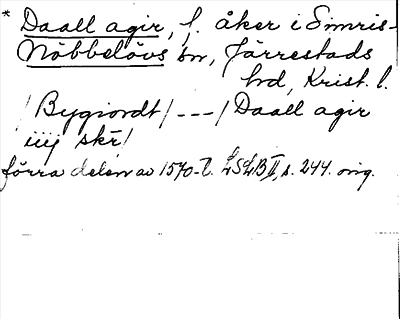 * Daall agir, f. åker i Simris-
Nöbbelövs sn, Järrestads
hrd, Krist. l.
/Bygiordt/---/Daall agir
iiij skr/
förra delen av 1570-t. LSLB II, s. 244. orig.